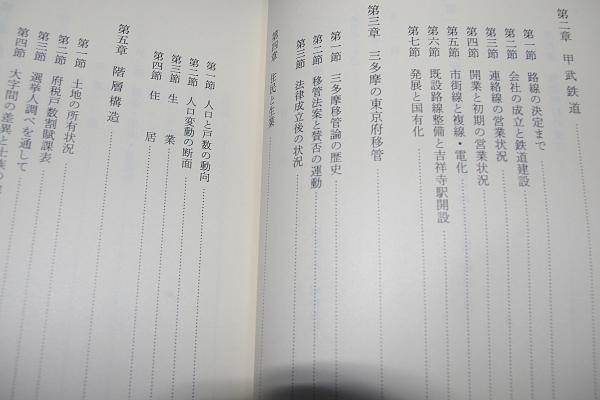 第二章 甲武鉄道
第一節 路線の決定まで
第二節 会社の成立と鉄道建設
第三節 連絡線の営業状況
第四節 開業と初期の営業状況
第五節 市街線と複線・電化
第六節 既設路線整備と吉祥寺駅開設
第七節 発展と国有化
第三章 三多摩の東京府移管
第一節 三多摩移管論の歴史
第二節 移管法案と賛否の運動
第三節 法律成立後の状況
第四章 住民と生業
第一節 人口と戸数の動向
第二節 人口変動の断面
第三節 生業
第四節 住居
第五章 階層構造
第一節 土地の所有状況
第二節 府税戸数割賦課表
第三節 選卒人調べを通して
第四節 大字間の差異と士族の